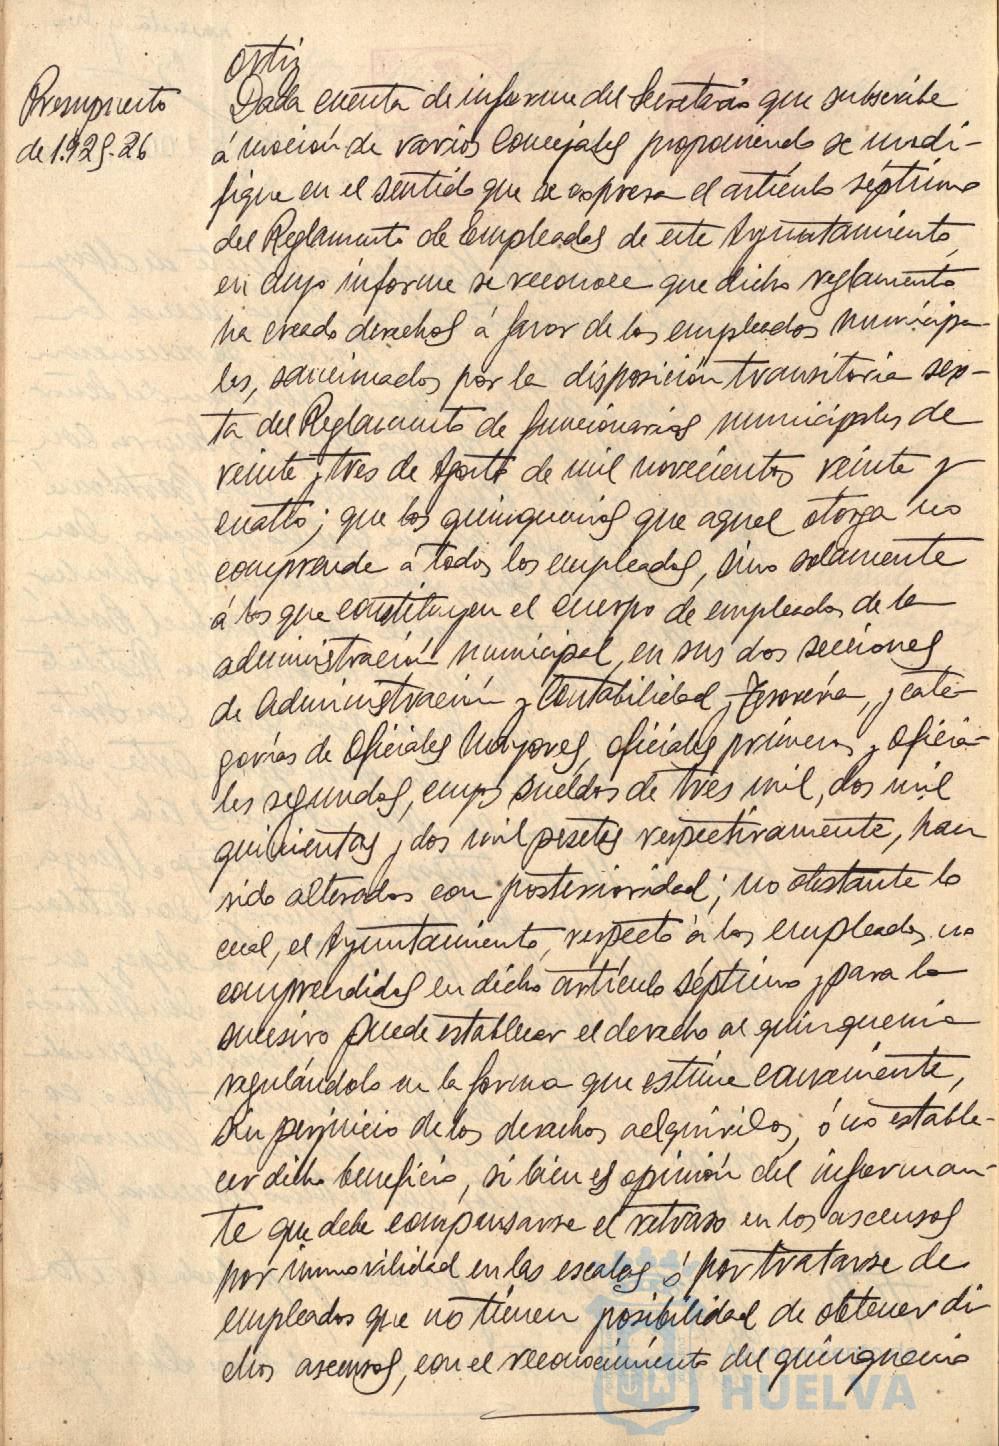 Ortiz
Presupuesto
de 1.925-26
Dada cuenta de informe del Secretario que subscribe
á moción de varios Concejales proponiendo se modi-
fique en el sentido que se expresa el artículo séptimo
del Reglamento de Empleados de este Ayuntamiento,
en cuyo informe se reconoce que dicho reglamento
ha creado derechos á favor de los empleados municipa-
les, sancionados por la disposición transitoria sex-
ta del Reglamento de funcionarios municipales de
veinte y tres de Agosto de mil novecientos veinte y
cuatro; que los quinquenios que aquel otorga no
comprende á todos los empleados, sino solamente
á los que constituyen el cuerpo de empleados de la
administración municipal, en sus dos secciones
de Administración y Contabilidad y Tesorería, y cate-
gorías de Oficiales Mayores, oficiales primeros y oficia-
les segundos, cuyos sueldos de tres mil, dos mil
quinientas y dos mil pesetas respectivamente, han
sido alterados con posterioridad; no obstante lo
cual, el Ayuntamiento, respecto á los empleados no
comprendidos en dicho artículo séptimo y para lo
sucesivo puede establecer el derecho al quinquenio
regulándolo en la forma que estime conveniente,
sin perjuicio de los derechos adquiridos, ó no estable-
cer dicho beneficio, si bien es opinión del informan-
te que debe compensarse el retraso en los ascensos
por inmovilidad en las escalas ó por tratarse de
empleados que no tienen posibilidad de obtener di
chos ascensos, con el reconocimiento del quinquenio
HUELVA